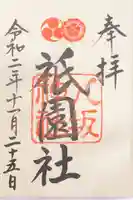 奉拝
祇園社
令和二年十一月二十五日